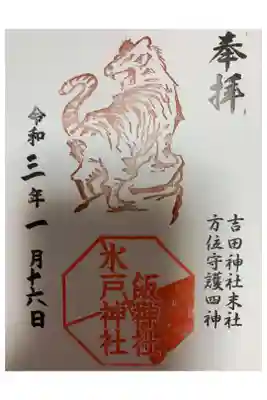 奉拝
吉田神社末社
方位守護四神
水戸神社
令和三年一月十六日